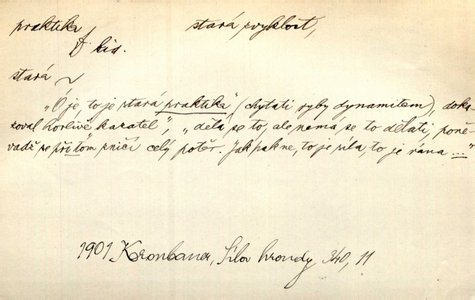 praktika stará zvyklost,
f kis.
stará ~
„Ó je, to je stará praktika" (chytati ryby dynamitem), doka-
zoval horlivě karatel", „dělá se to, ale nemá se to dělati, poně-
vadž se při tom zničí celý potěr. Jak pak ne, to je síla, to je rána ..."
1901 Kronbauer, Síla hroudy 340, 11